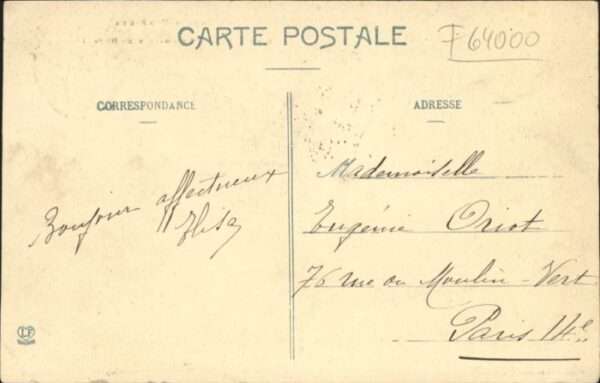 CARTE POSTALE
F 64000
CORRESPONDANCE
ADRESSE
Bonjour affectueux
Mademoiselle
Eugénie Oriot
76 rue du Moulin-Vert
Paris 14e
LF